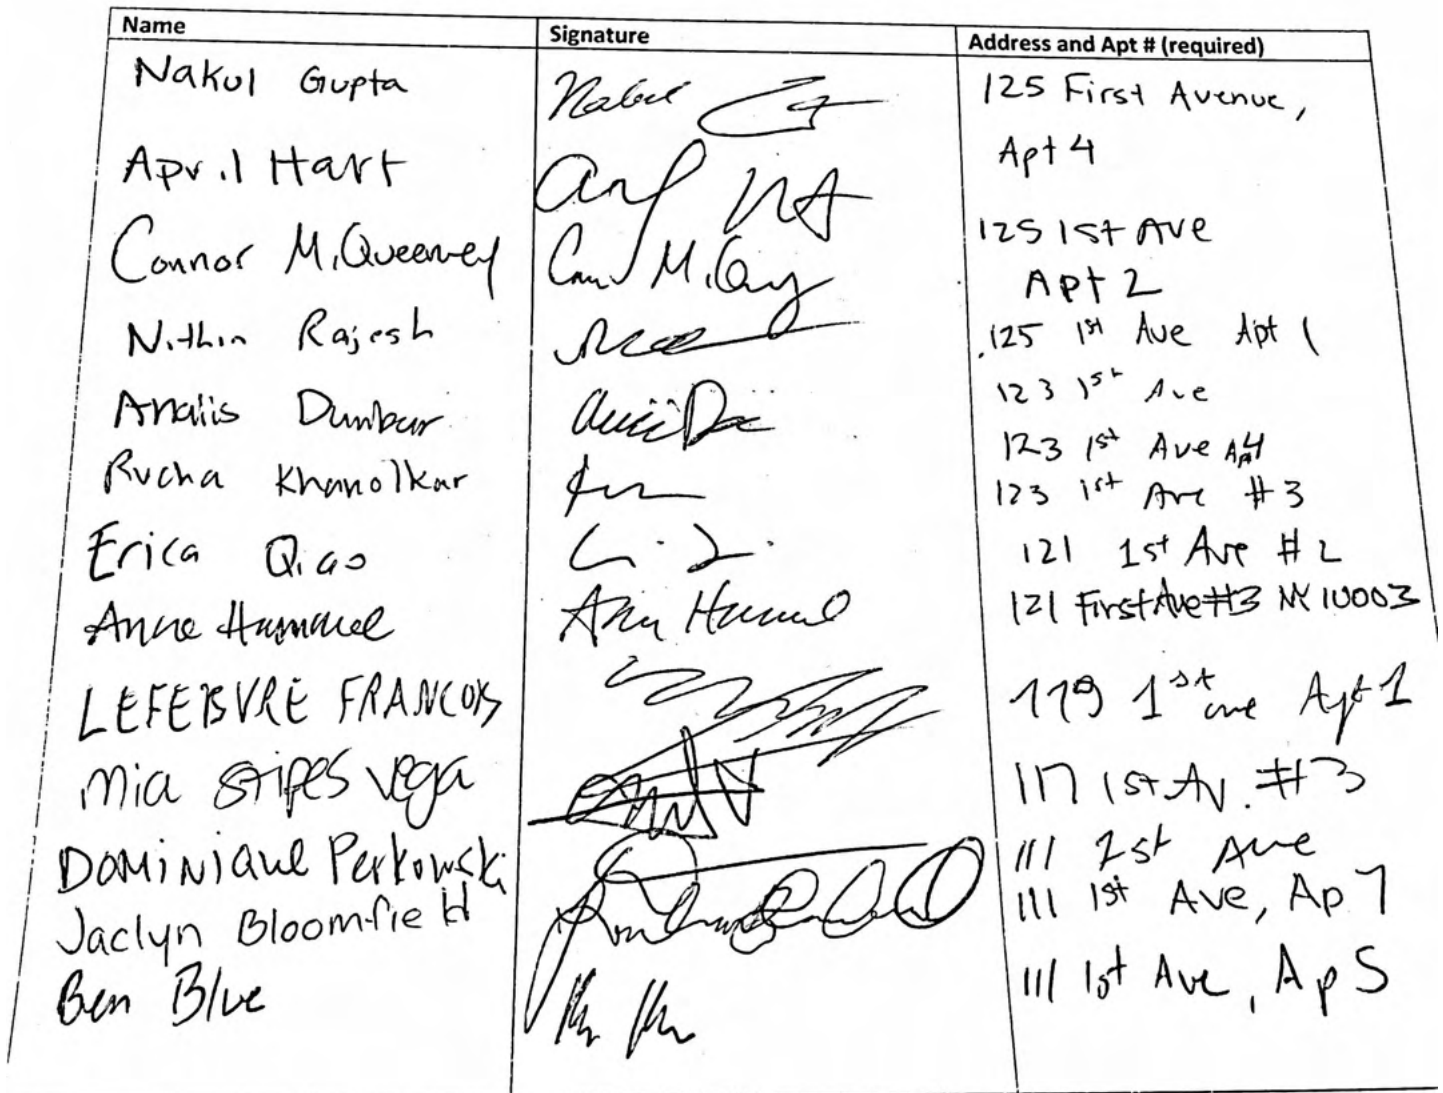 Name Signature Address and Apt # (required)
Nakul Gupta 125 First Avenue,
Apt 4
April Hart
125 1st Ave
Connor McQueeney
Apt 2
Nithin Rajesh 125 1st Ave Apt 1
Analiis Dunbar 123 1st Ave
123 1st Ave Apt 4
Rucha Khanolkar 123 1st Ave #3
Erica Qiao 121 1st Ave #2
Anne Hummel 121 First Ave #3 NY 10003
LEFEBVRE FRANCOIS 119 1st ave Apt 1
Mia Stipes Vega 117 1st Av. #3
DOMINIQUE Perkowski 111 1st Ave
Jaclyn Bloomfield 111 1st Ave, Ap 7
Ben Blue 111 1st Ave, Ap 5